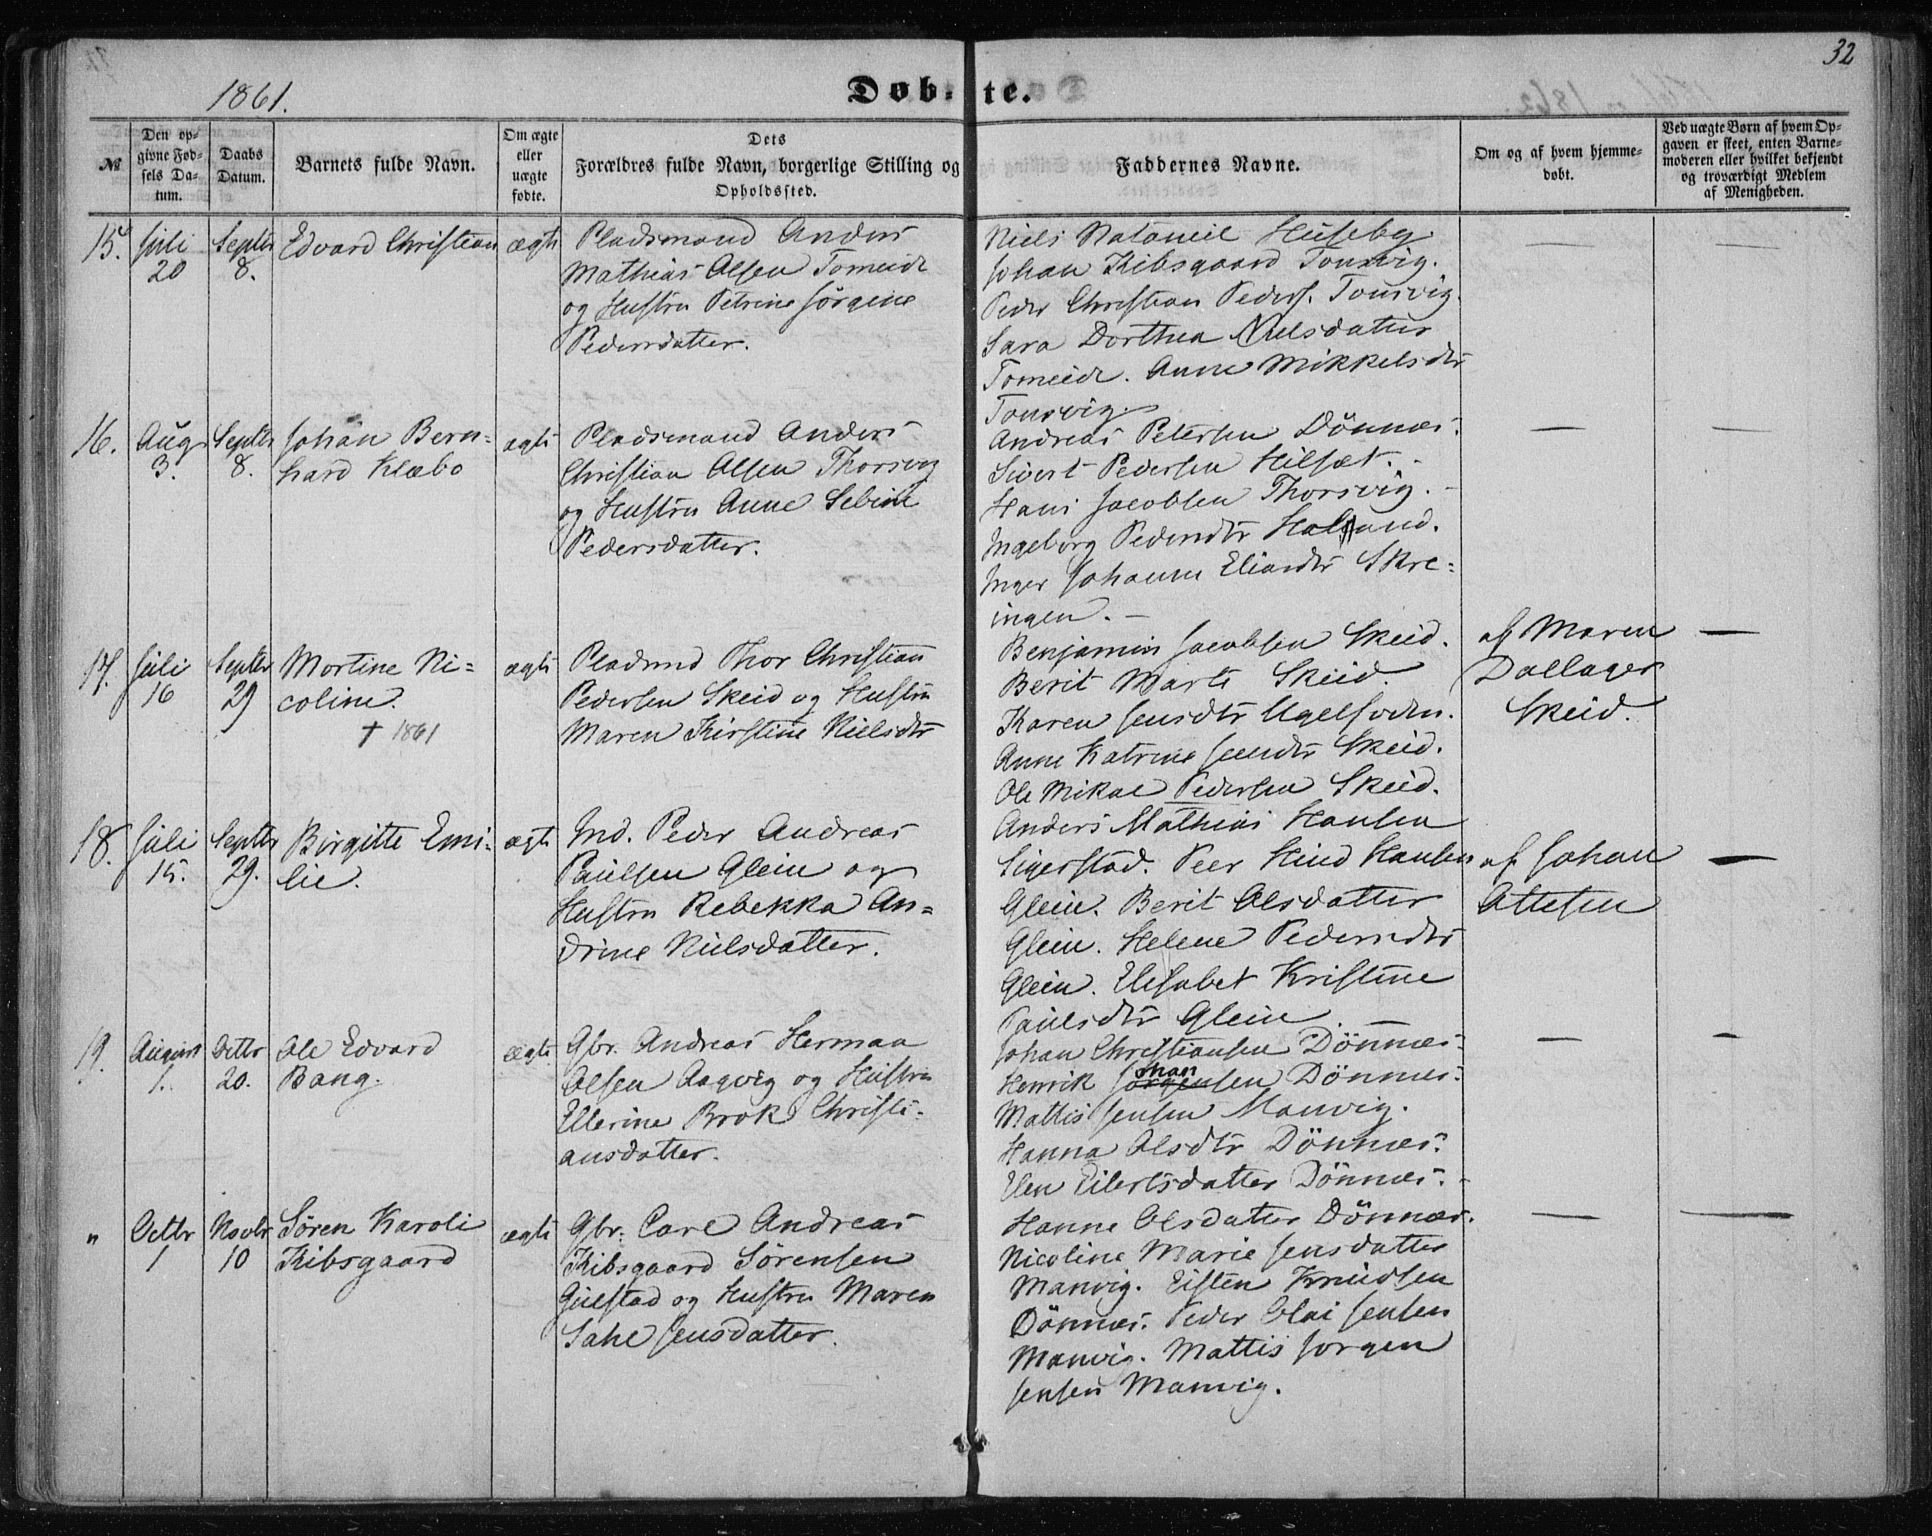 32
1861.
Døb-te.
№
Den op-
givne Fød-
sels Da-
tum.
Daabs
Datum.
Barnets fulde Navn.
Om ægte
eller
uægte
fødte.
Dets
Forældres fulde Navn, borgerlige Stilling og
Opholdssted.
Faddernes Navne.
Om og af hvem hjemme-
døbt.
Ved uægte Børn af hvem Op-
gaven er skeet, enten Barne-
moderen eller hvilket bekjendt
og troværdigt Medlem
af Menigheden.
15. Juli 20 Septbr 8. Edvard Christian ægte
Pladsmand Anders
Mathias Olsen Tomeide
og Hustru Petrine Jörgine
Pedersdatter.
Niels Nataneil Huseby.
Johan Kibsgaard Tonsvig.
Peder Christian Peders. Tonsvig.
Sara Dorthea Nielsdatter
Tomeide. Anne Mikkelsdtr
Tonsvig.
16. Aug. 3. Septbr 8. Johan Bern-
hard Klæbo
ægte
Pladsmand Anders
Christian Olsen Thorsvig
og Hustru Anne Sebine
Pedersdatter.
Andreas Petersen Dönnæs.
Sivert Pedersen Hilsæt.
Hans Jacobsen Thorsvig.
Ingeborg Pedersdtr Halsund.
Inger Johanne Eliasdtr Skre-
ingen.
17. Juli 16 Septbr 29 Mortine Ni-
coline.
† 1861
ægte
Pladsmd Thor Christian
Pedersen Skeid og Hustru
Maren Kirstine Nielsdtr
Benjamin Jacobsen Skeid.
Berit Marte Skeid.
Karen Jensdtr Ugelsoden.
Anne Katrine Jensdtr Skeid.
Ole Mikal Pedersen Skeid.
af Maren
Dallager
Skeid.
18. Juli 15. Septbr 29. Birgitte Emi-
lie.
ægte
Ind. Peder Andreas
Paulsen Glein og
Hustru Rebekka An-
drine Nielsdatter.
Anders Mathias Hansen
Sigerstad. Peer Hind Hansen
Glein. Berit Olsdatter
Glein. Helene Pedersdtr
Glein. Elisabet Kristine
Paulsdtr Glein
af Johan
Ottesen
19. August 1. Octbr 20. Ole Edvard
Bang.
ægte
Gbr. Andreas Herman
Olsen Aagvig og Hustru
Ellerine Brok Christi-
ansdatter.
Johan Christiansen Dönnæs.
Henrik Johansen Dönnæs.
Mattis Jensen Manvig.
Hanna Olsdtr Dönnæs.
Elen Eilertsdatter Dönnæs.
" Octbr 1 Novbr 10 Sören Karoli
Kibsgaard
ægte
Gbr. Carl Andreas
Kibsgaard Sörensen
Gulstad og Hustru Maren
Sahe Jensdatter.
Hanne Olsdatter Dönnæs.
Nicoline Marie Jensdatter
Manvig. Eisten Knudsen
Dönnæs. Peder Olai Jensen
Manvig. Mattis Jörgen
Jensen Manvig.